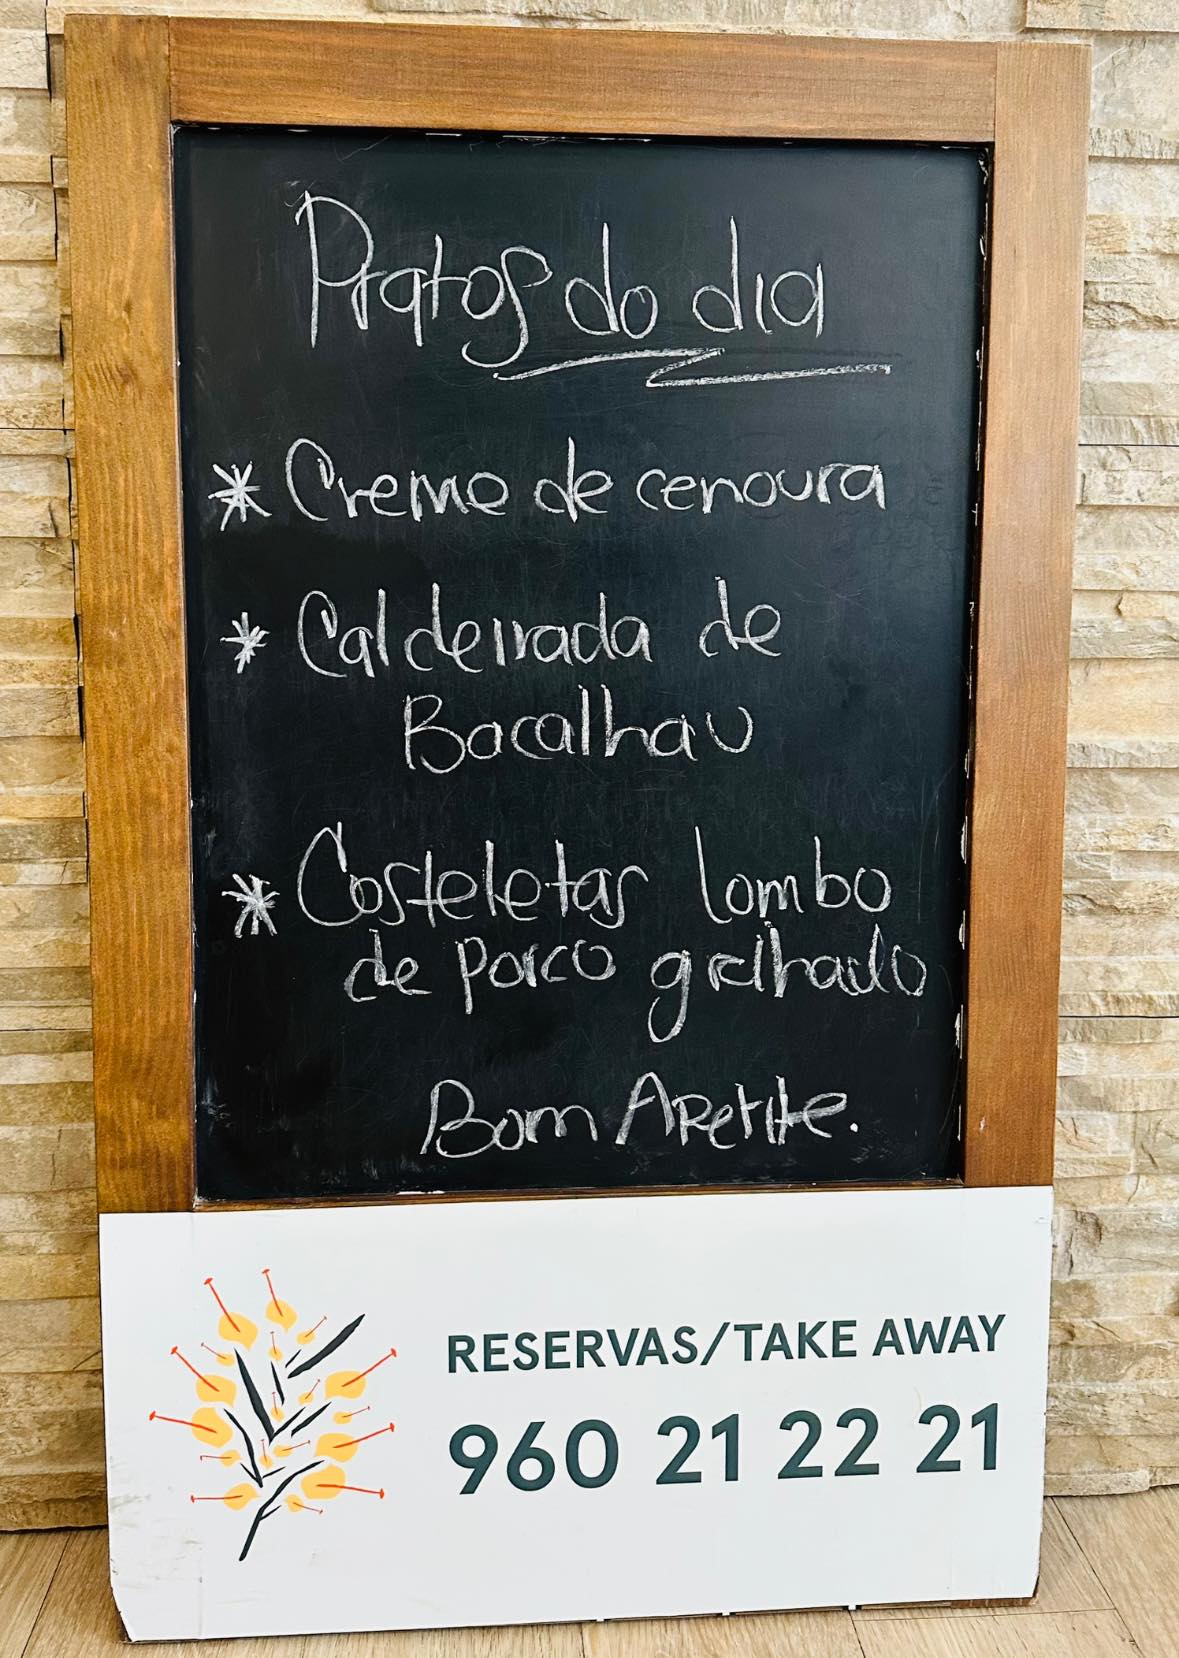 Pratos do dia
* Creme de cenoura
* Caldeirada de
Bacalhau
* Costeletas lombo
de porco grelhado
Bom Apetite.
RESERVAS/TAKE AWAY
960 21 22 21